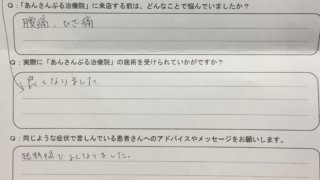 Q：「あんさんぶる治療院」に来店する前は、どんなことで悩んでいましたか？
腰痛、ひざ痛
Q：実際に「あんさんぶる治療院」の施術を受けられていかがですか？
良くなりました
Q：同じような症状で苦しんでいる患者さんへのアドバイスやメッセージをお願いします。
よくなりました。